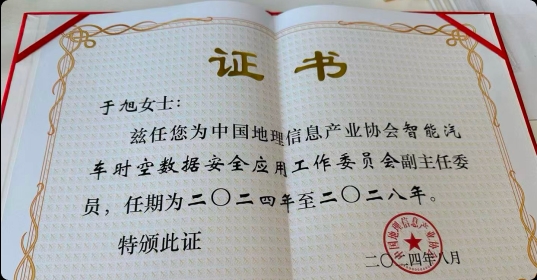 证书
于旭女士：
兹任您为中国地理信息产业协会智能汽
车时空数据安全应用工作委员会副主任委
员，任期为二〇二四年至二〇二八年。
特颁此证
中国地理信息产业协会
二〇二四年八月